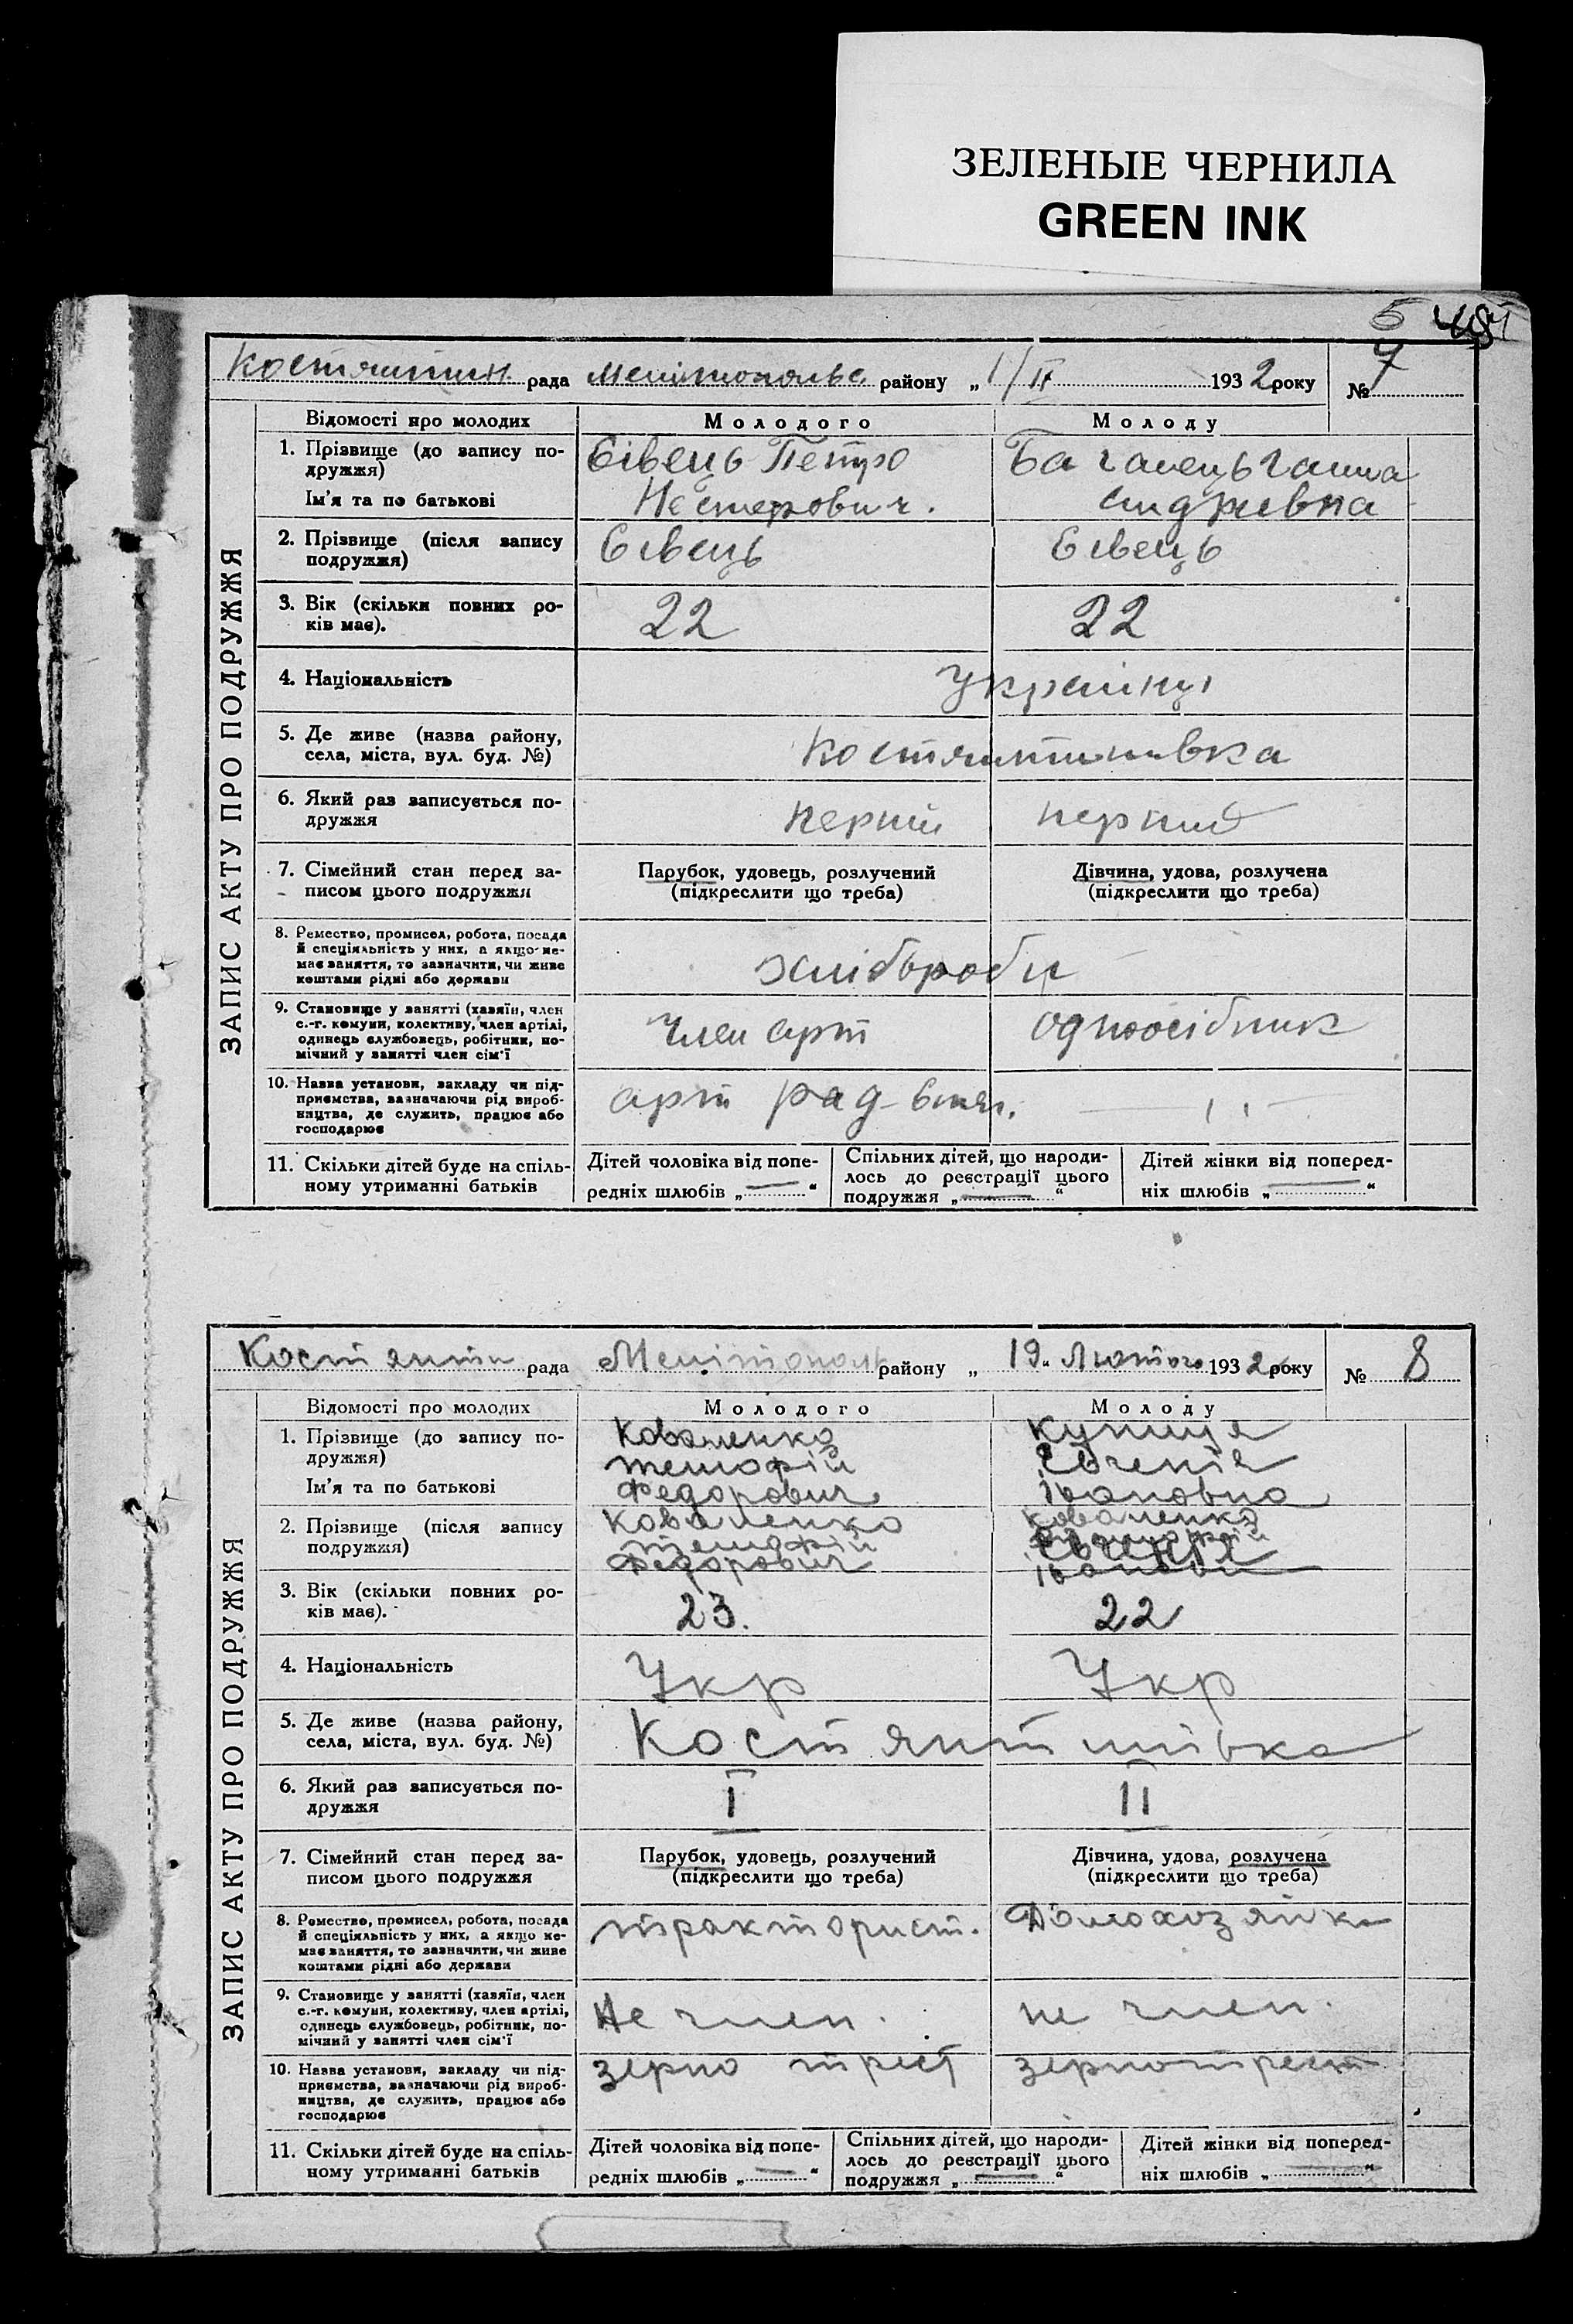 ЗЕЛЕНЫЕ ЧЕРНИЛА
GREEN INK
5
Костянтин рада Мелітопольс району „ 1/ІІ 1932 року № 7
ЗАПИС АКТУ ПРО ПОДРУЖЖЯ
Відомості про молодих Молодого Молоду
1. Прізвище (до запису по- Сівець Петро Ганна
дружжя)
Ім'я та по батькові Нестерович.
2. Прізвище (після запису Сівець Сівець
подружжя)
3. Вік (скільки повних ро- 22 22
ків має).
4. Національність Українці
5. Де живе (назва району, Костянтинивка
села, міста, вул. буд. №)
6. Який раз записується по-
дружжя
7. Сімейний стан перед за- Парубок, удовець, розлучений Дівчина, удова, розлучена
писом цього подружжя (підкреслити що треба) (підкреслити що треба)
8. Ремество, промисел, робота, посада
й спеціяльність у них, а якщо не-
має заняття, то зазначити, чи живе хлібороби
коштами рідні або держави
9. Становище у занятті (хазяїн, член
с.-г. комуни, колективу, член артілі, Член арт одноосібник
одинець службовець, робітник, по-
мічний у занятті член сім'ї
10. Назва установи, закладу чи під-
приємства, зазначаючи рід вироб- арт рад
ництва, де служить, працює або
господарює
11. Скільки дітей буде на спіль- Дітей чоловіка від попе- Спільних дітей, що народи- Дітей жінки від поперед-
ному утриманні батьків редніх шлюбів „ — “ лось до реєстрації цього ніх шлюбів „ — “
подружжя „ — “
Костянтин рада Мелітополь району „ 19 „ Лютого 1932 року № 8
ЗАПИС АКТУ ПРО ПОДРУЖЖЯ
Відомості про молодих Молодого Молоду
1. Прізвище (до запису по- Коваленко
дружжя) Тимофій Євгенія
Ім'я та по батькові Федорович Івановна
2. Прізвище (після запису Коваленко Коваленко
подружжя) Тимофій Євгенія
Федорович Іванови
3. Вік (скільки повних ро- 23. 22
ків має).
4. Національність Укр Укр
5. Де живе (назва району, Костянтинівка
села, міста, вул. буд. №)
6. Який раз записується по- I II
дружжя
7. Сімейний стан перед за- Парубок, удовець, розлучений Дівчина, удова, розлучена
писом цього подружжя (підкреслити що треба) (підкреслити що треба)
8. Ремество, промисел, робота, посада тракторист. Домохозяйка
й спеціяльність у них, а якщо не-
має заняття, то зазначити, чи живе
коштами рідні або держави
9. Становище у занятті (хазяїн, член
с.-г. комуни, колективу, член артілі, Не член. не член.
одинець службовець, робітник, по-
мічний у занятті член сім'ї
10. Назва установи, закладу чи під- зерно трест зернотрест
приємства, зазначаючи рід вироб-
ництва, де служить, працює або
господарює
11. Скільки дітей буде на спіль- Дітей чоловіка від попе- Спільних дітей, що народи- Дітей жінки від поперед-
ному утриманні батьків редніх шлюбів „ — “ лось до реєстрації цього ніх шлюбів „ — “
подружжя „ — “